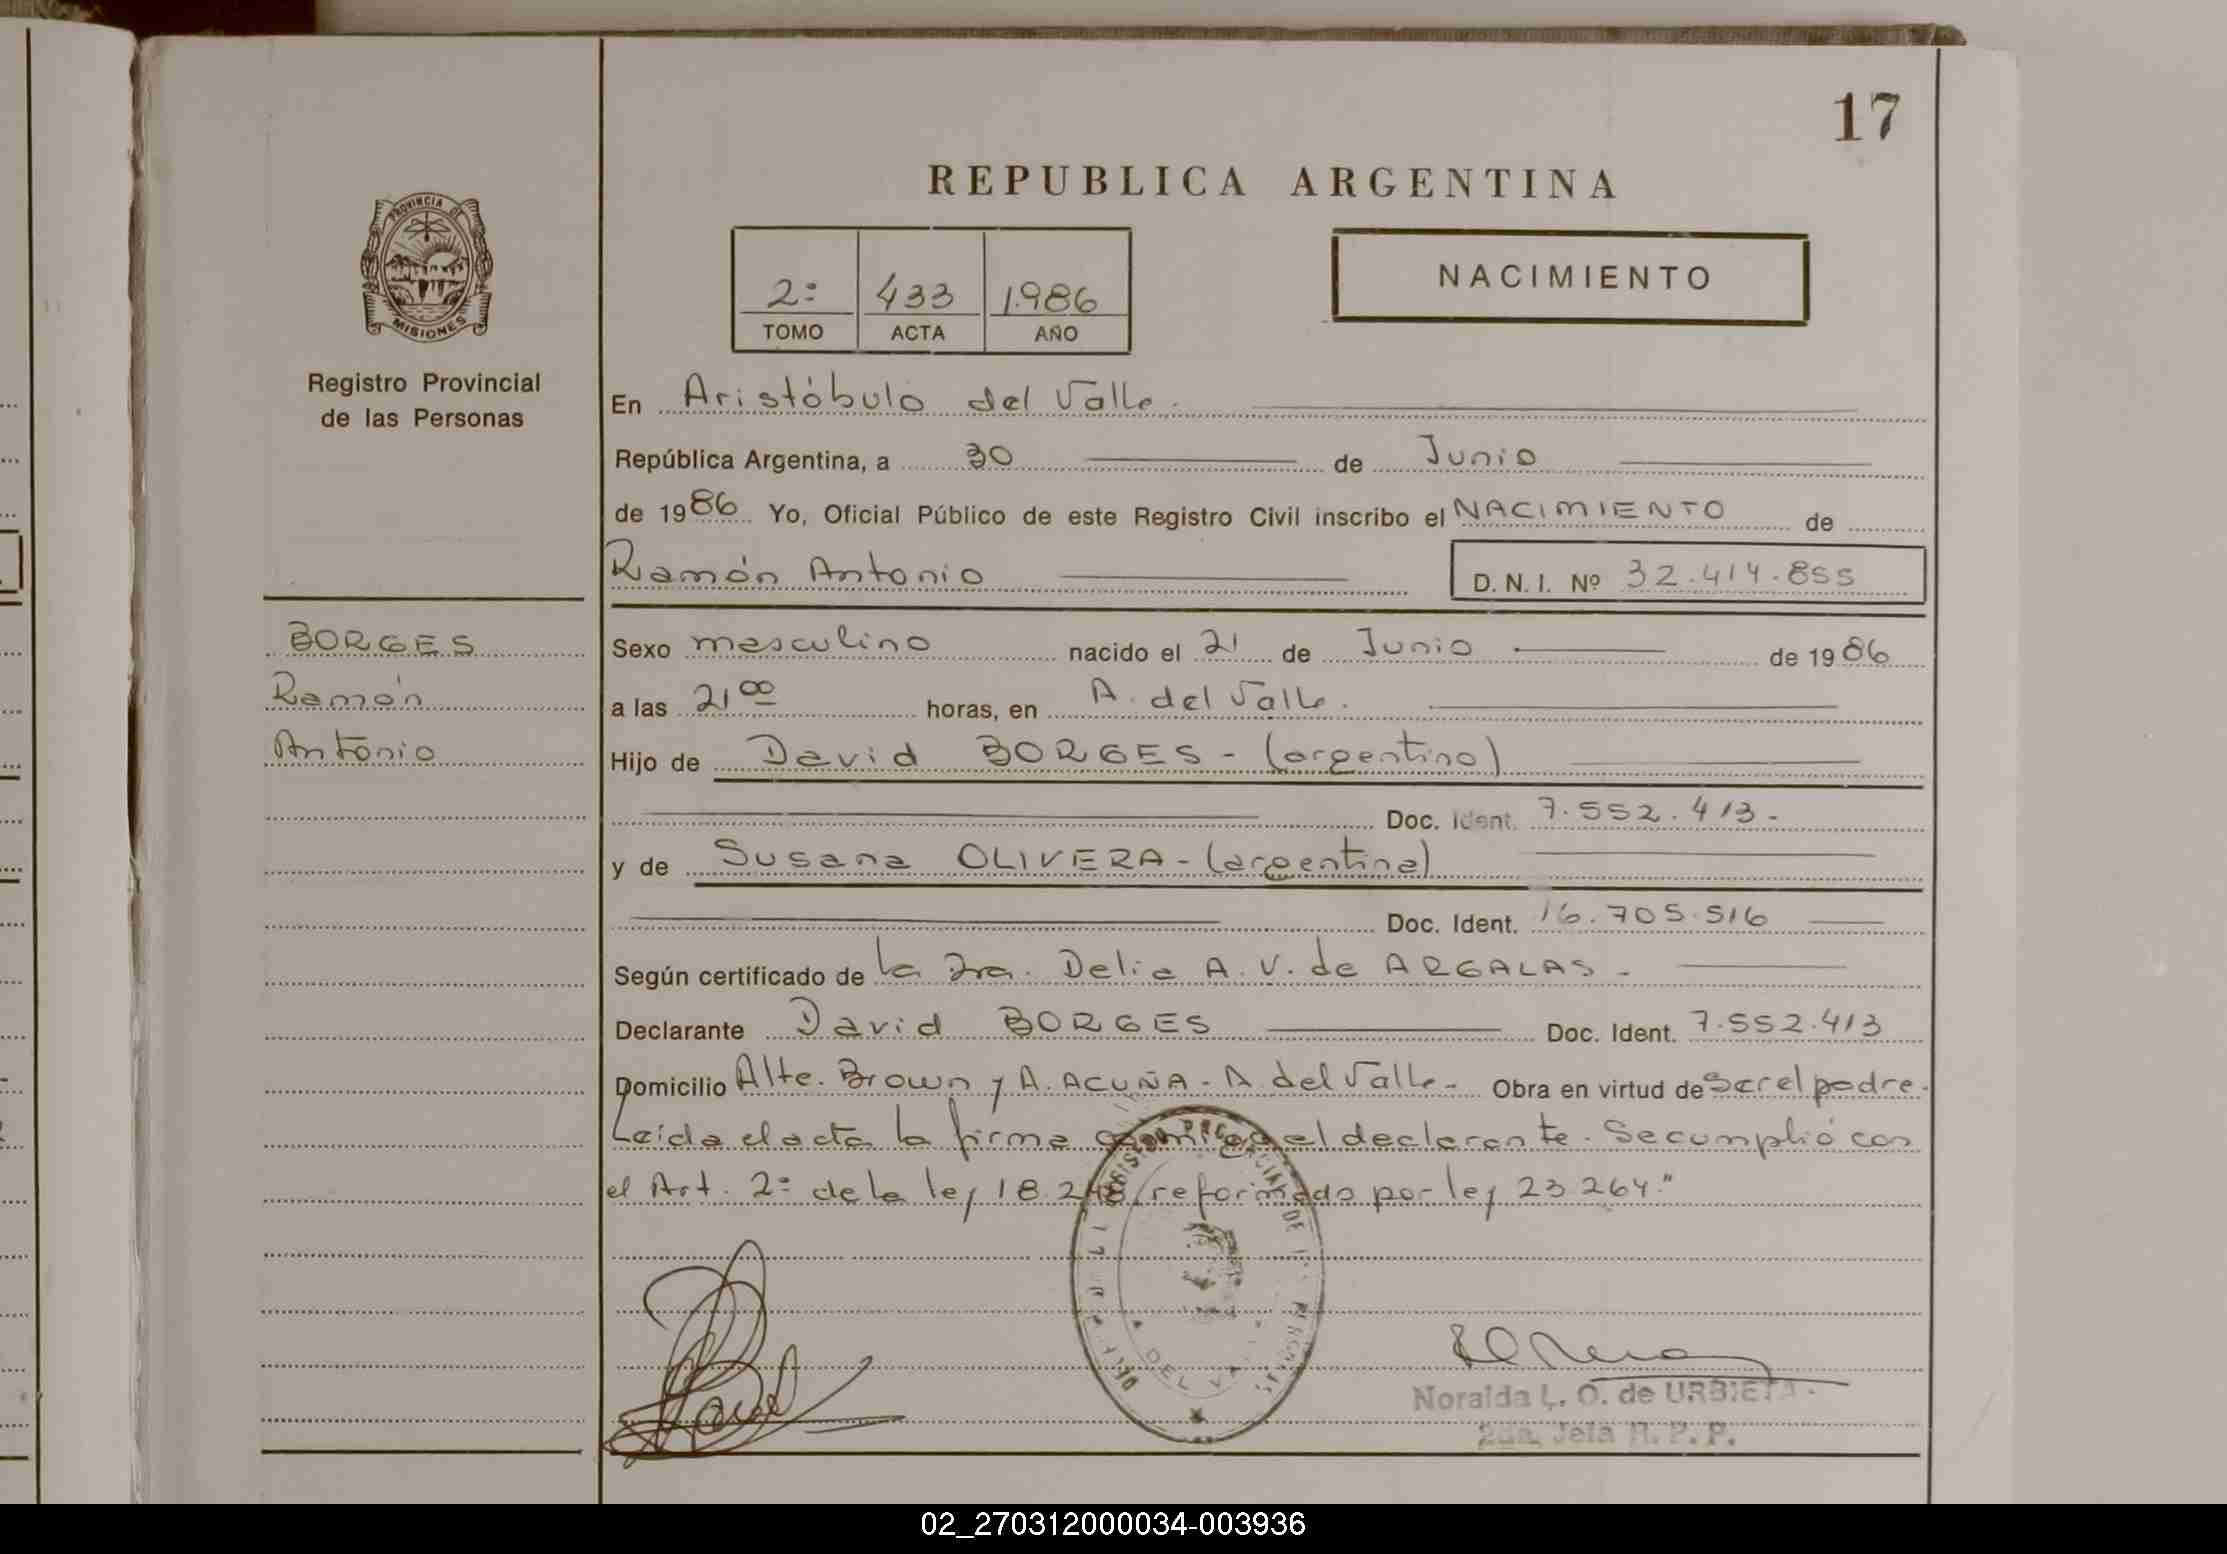 17
REPUBLICA ARGENTINA
PROVINCIA DE
MISIONES
Registro Provincial
de las Personas
2º 433 1.986
TOMO ACTA AÑO
NACIMIENTO
En Aristóbulo del Valle.
República Argentina, a 30 de Junio
de 1986 Yo, Oficial Público de este Registro Civil inscribo el NACIMIENTO de
Ramón Antonio D. N. I. Nº 32.414.855
BORGES
Ramón
Antonio
Sexo masculino nacido el 21 de Junio de 1986
a las 21 00 horas, en A. del Valle.
Hijo de David BORGES - (argentino)
Doc. Ident. 7.552.413-
y de Susana OLIVERA - (argentina)
Doc. Ident. 16.705.516
Según certificado de la Sra. Delia A. V. de ARGALAS -
Declarante David BORGES Doc. Ident. 7.552.413
Domicilio Alte. Brown y A. ACUÑA - A. del Valle - Obra en virtud de Ser el padre.
Leída el acta la firma conmigo el declarante. Se cumplió con
el Art. 2º de la ley 18.248, reformado por ley 23.264."
DEL VA
Noralda L. O. de URBIETA
2da. Jefa R. P. P.
02_270312000034-003936